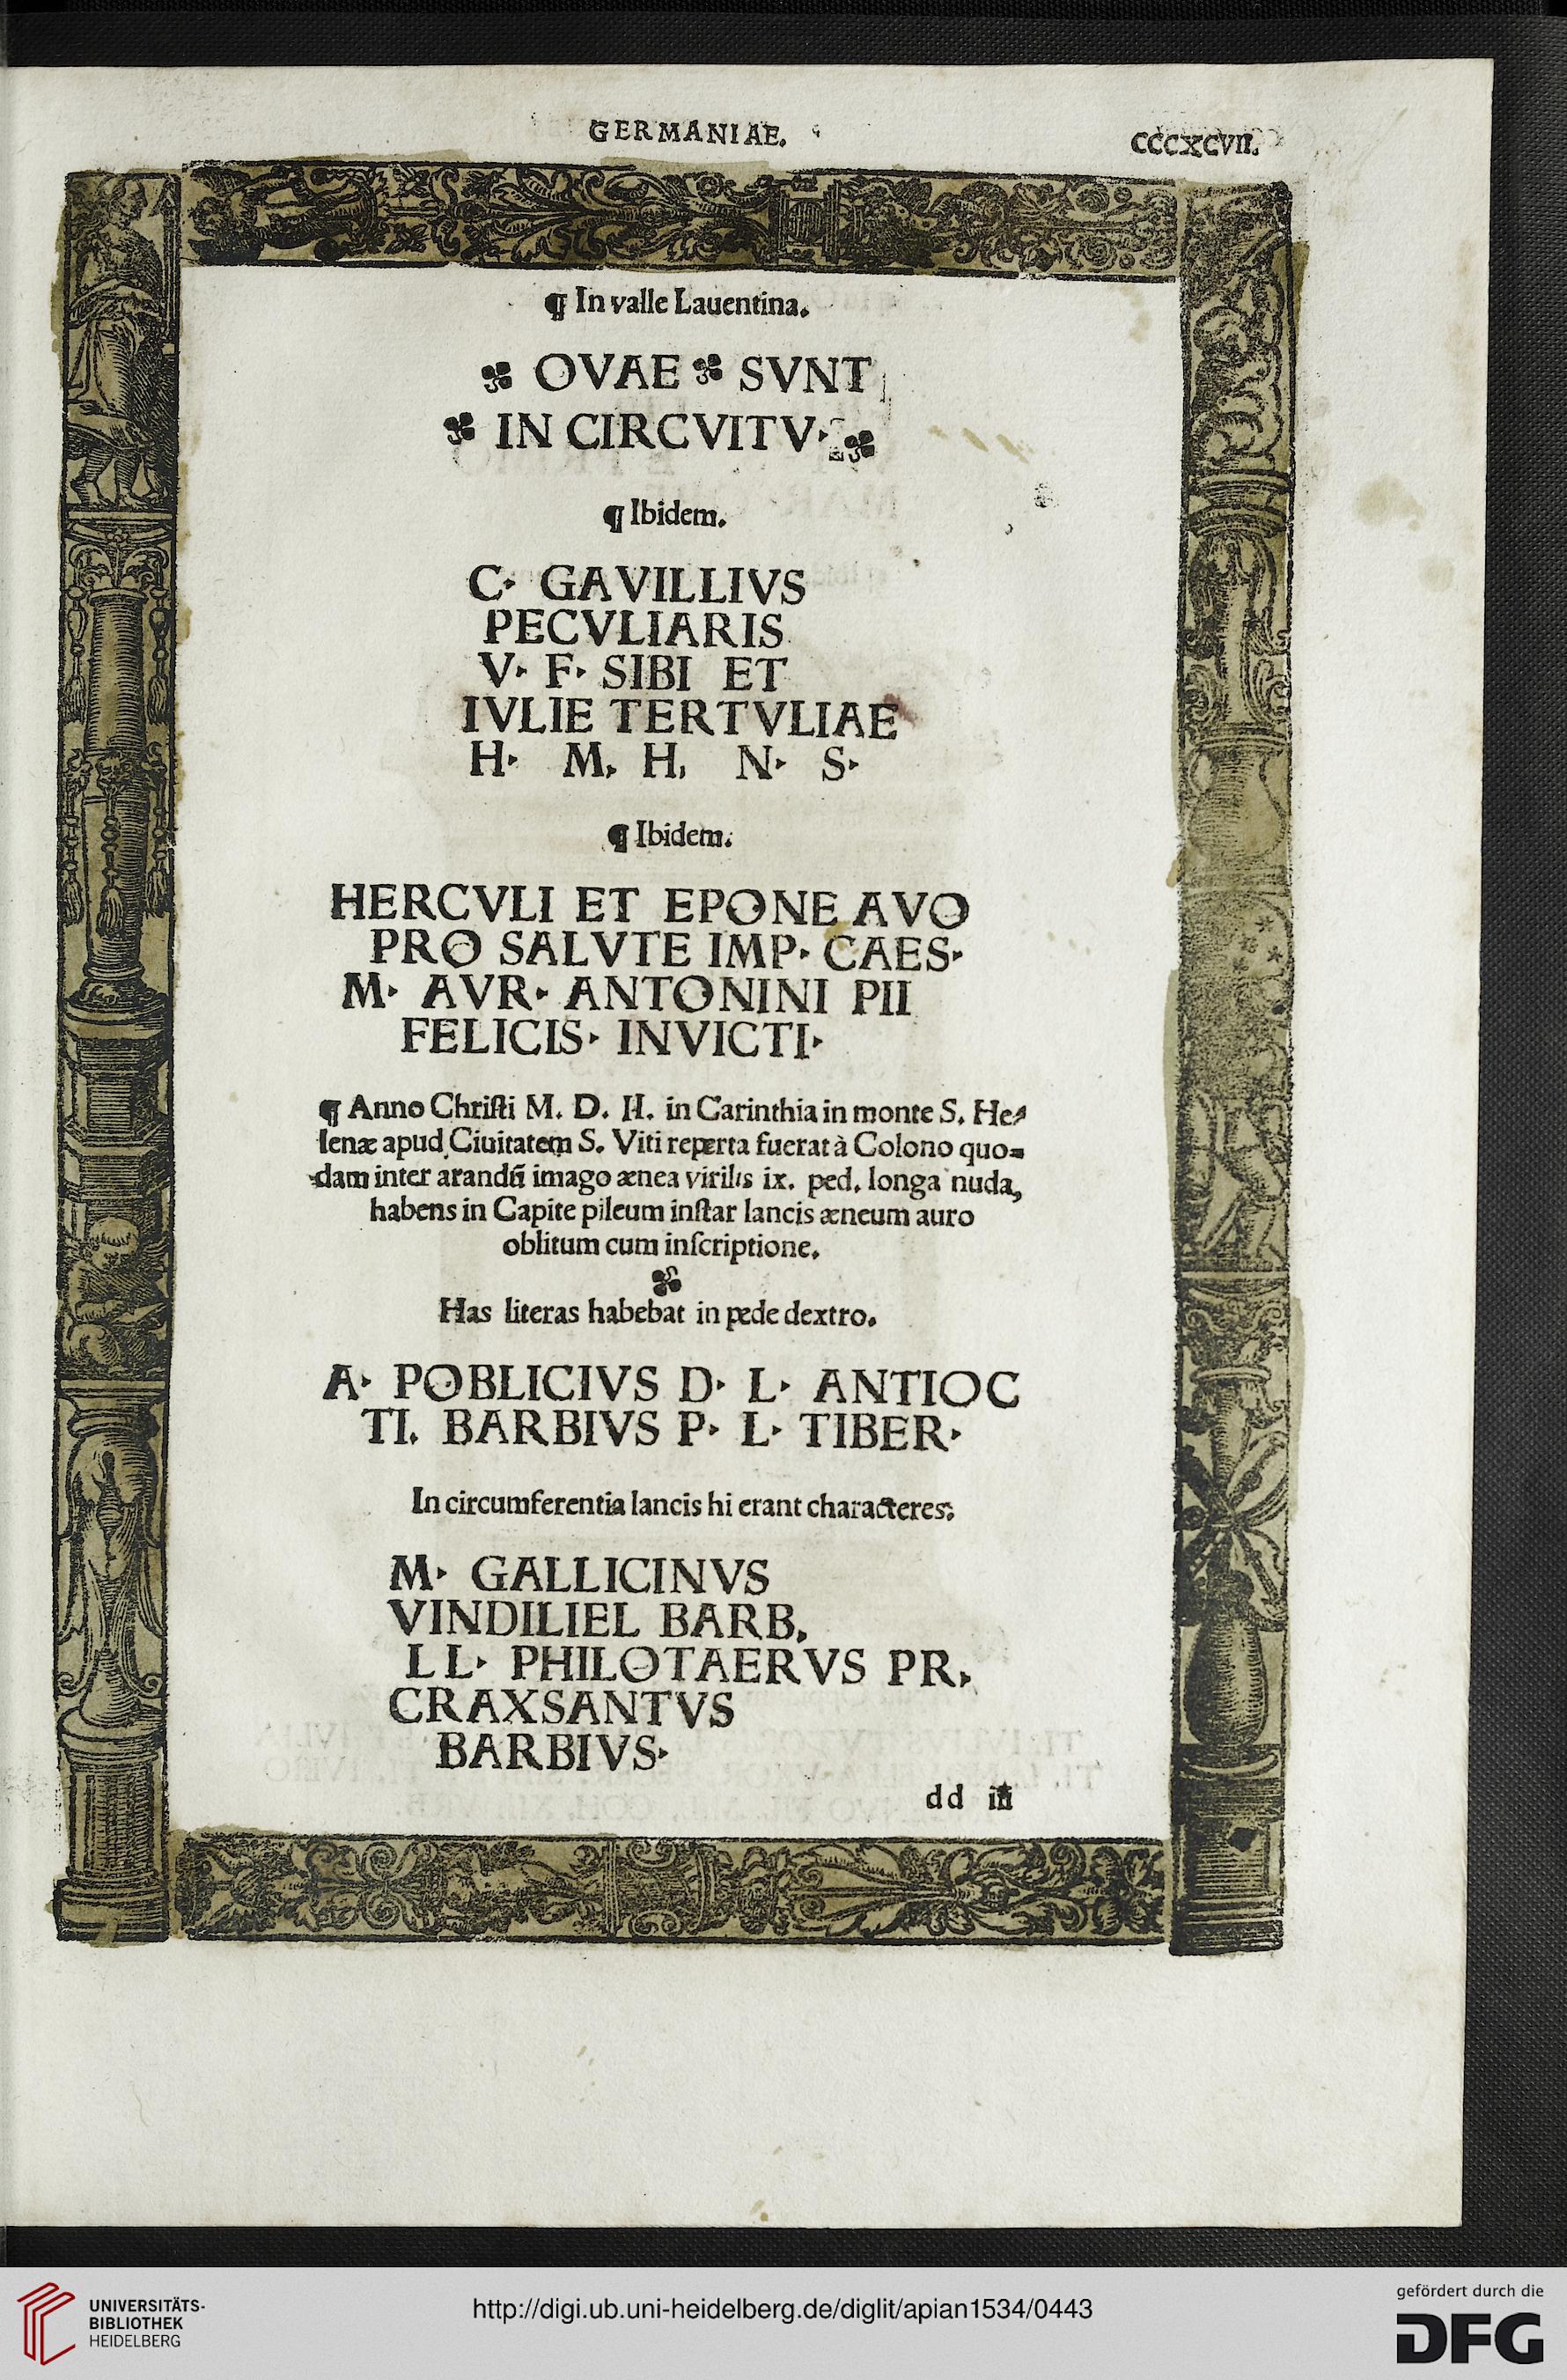 GERMANIAE.
CCCXCVII.
¶ In valle Lauentina.
OVAE SVNT
IN CIRCVITV·
¶ Ibidem.
C· GAVILLIVS
PECVLIARIS
V· F· SIBI ET
IVLIE TERTVLIAE
H· M, H, N· S·
¶ Ibidem.
HERCVLI ET EPONE AVO
PRO SALVTE IMP· CAES·
M· AVR· ANTONINI PII
FELICIS· INVICTI·
¶ Anno Chriſti M. D. II. in Carinthia in monte S. He⸗
lenæ apud Ciuitatem S. Viti reperta fuerat à Colono quo⸗
dam inter arandũ imago ænea virilis ix. ped. longa nuda,
habens in Capite pileum inſtar lancis æneum auro
oblitum cum inſcriptione.
Has literas habebat in pede dextro.
A· POBLICIVS D· L· ANTIOC
TI. BARBIVS P· L· TIBER·
In circumferentia lancis hi erant characteres:
M· GALLICINVS
VINDILIEL BARB.
LL· PHILOTAERVS PR,
CRAXSANTVS
BARBIVS·
dd iii
UNIVERSITÄTS-
BIBLIOTHEK
HEIDELBERG
http://digi.ub.uni-heidelberg.de/diglit/apian1534/0443
gefördert durch die
DFG